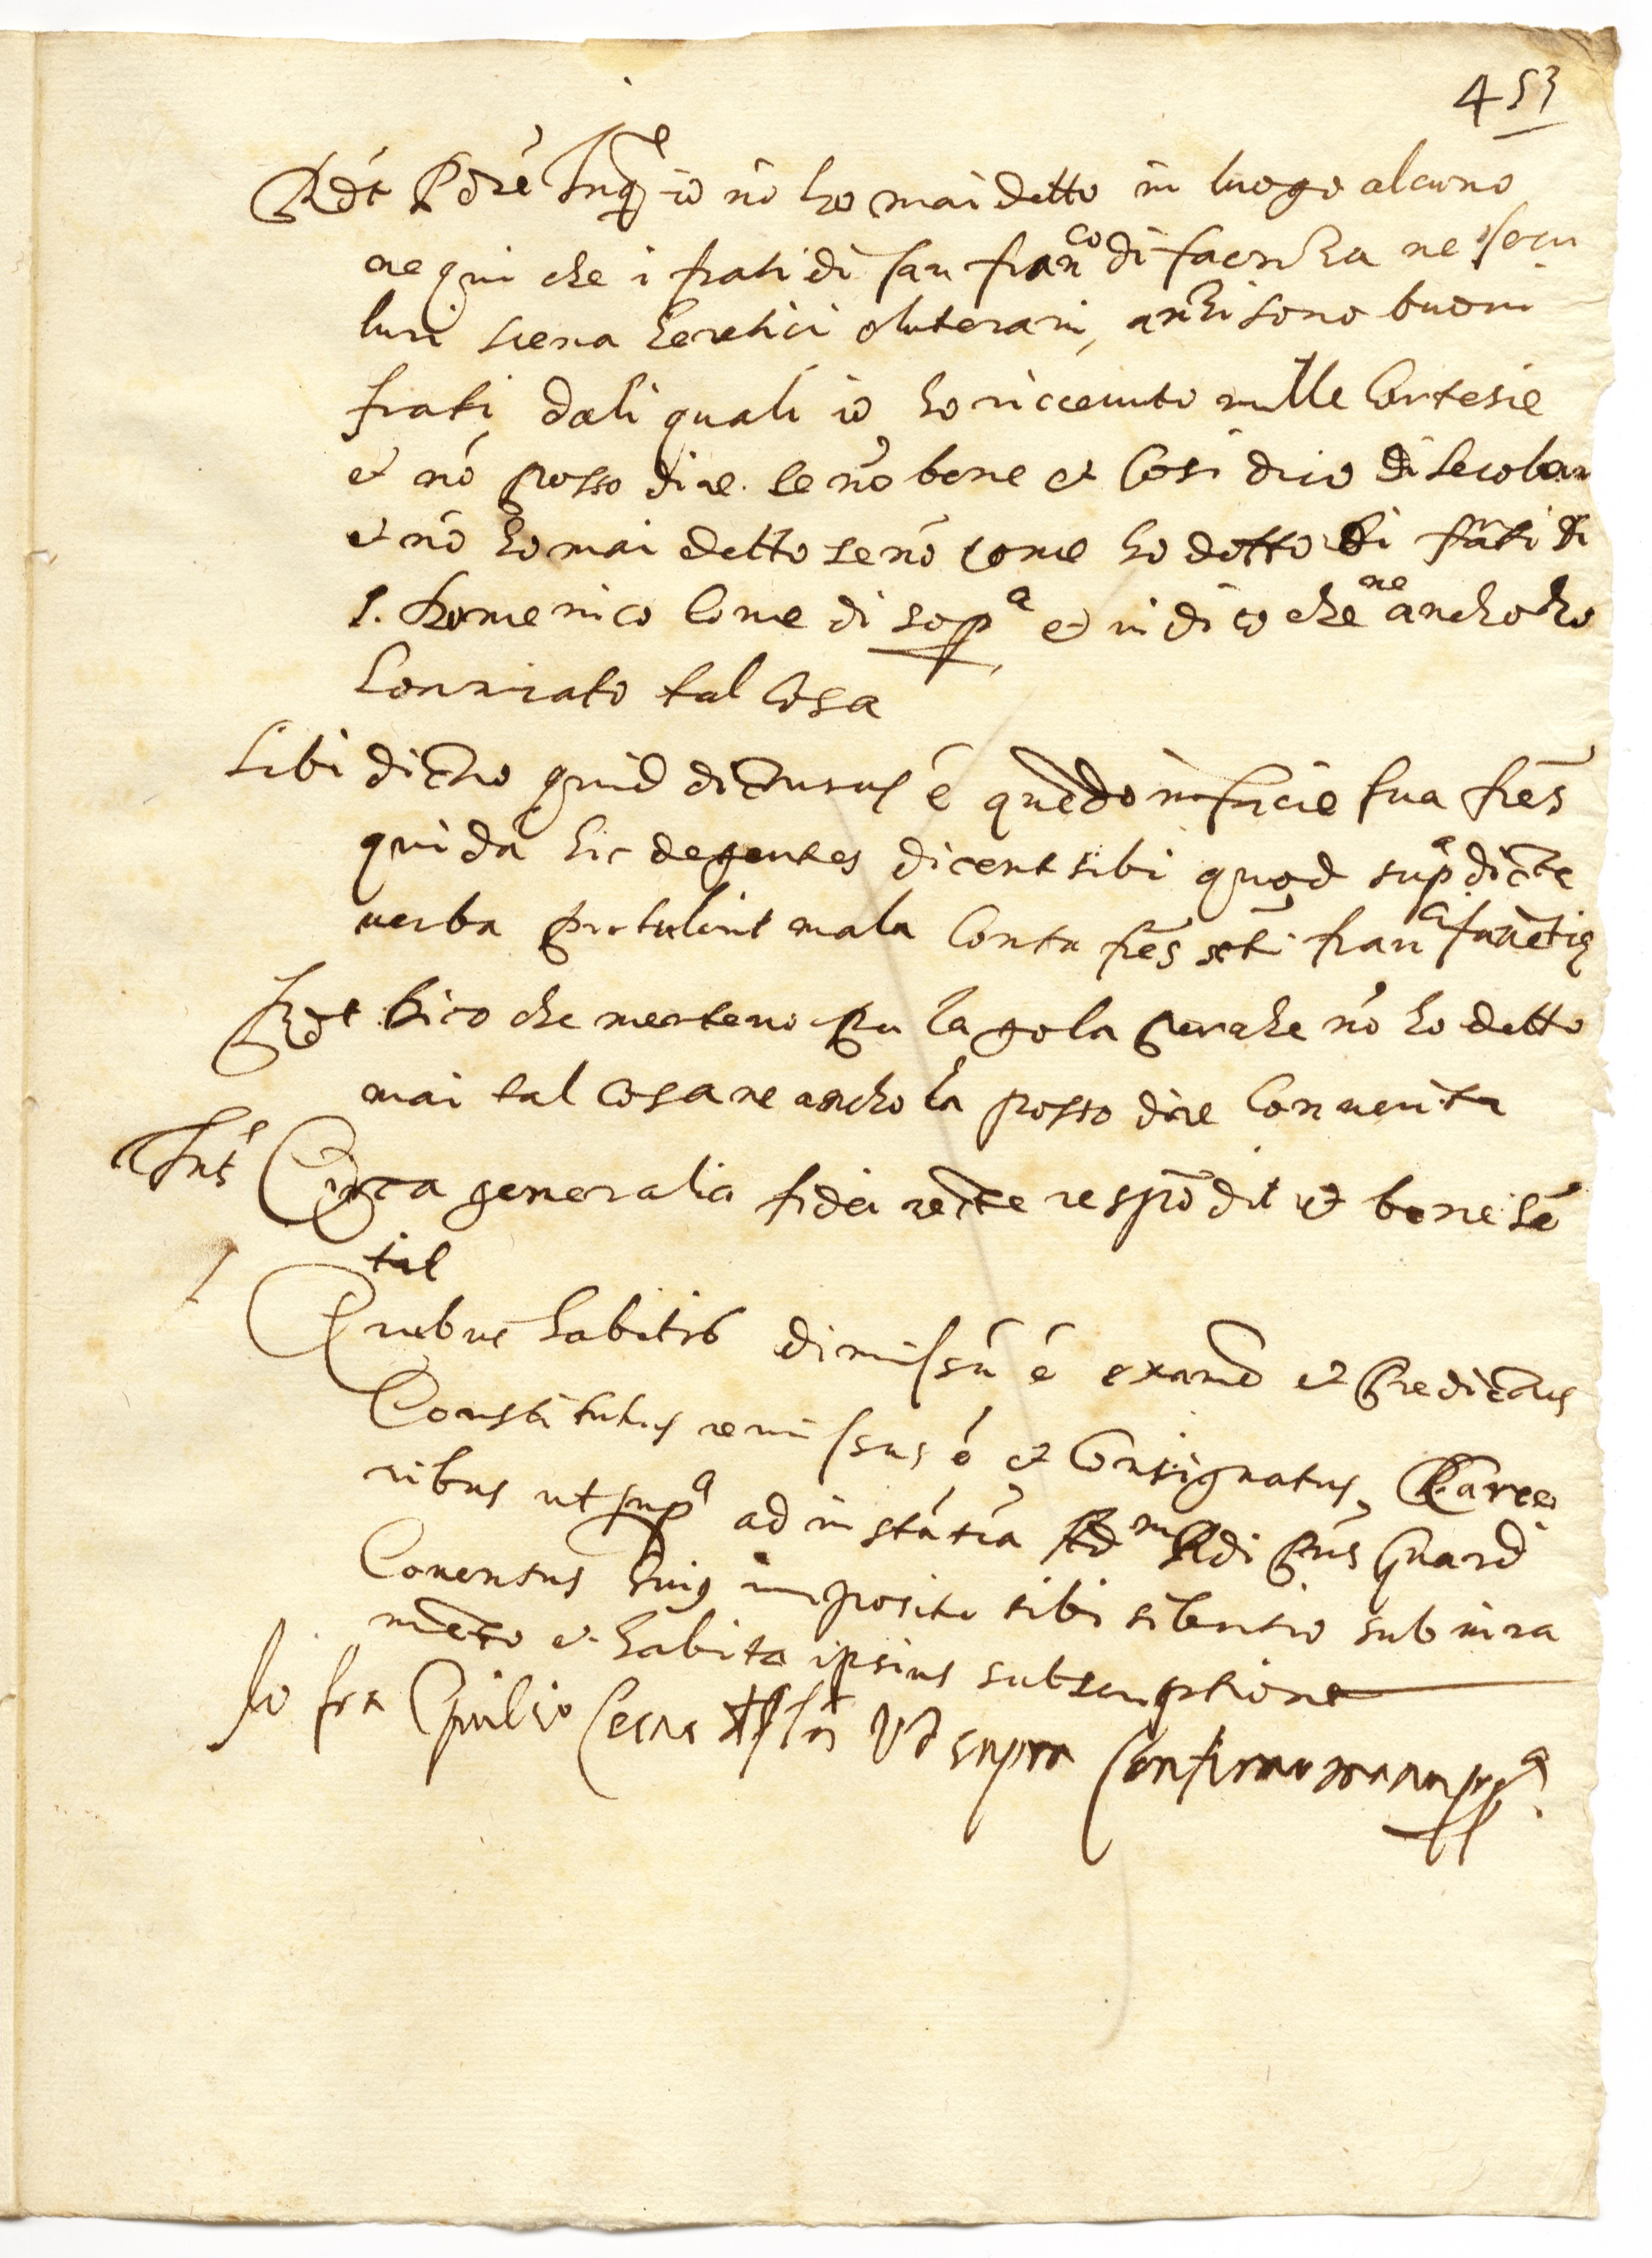 453
Rdt Pdre Inqre io nō ho mai detto in luogo alcuno
ne qui che i frati di san franco di faenza ne secu
lari siena heretici o luterani, anzi sono buoni
frati, dali quali io ho riceuuto mille cortesie
et nō posso dire se nō bene et cosi dico di secolari
et nō ho mai detto se nō come ho detto di frati di
s. Domenico come di sopa et ui dico che ne ancho ho
tal cosa
Sibi dicto quid dicturus ē quādo in facie sua fres
quidā hic degentes dicent sibi quod supadicte
uerba protulerit mala contra fres sti franci
Rdt Dico che menteno per la gola perche nō ho detto
mai tal cosa ne ancho la posso dire con uerita
Int Circa generalia fidei recte respōdit et bene sē
tit
Quibus habitis dimissū ē examē et predictus
Constitutus remissus ē et consignatus Carce
ribus ut supa ad instātiā Rdi Pris Guardi
Conentus huiq imposito sibi silentio sub iura
mēto et habita ipsius subscriptione
Io fra Giulio Cesare ut supra confirmo manu ppa